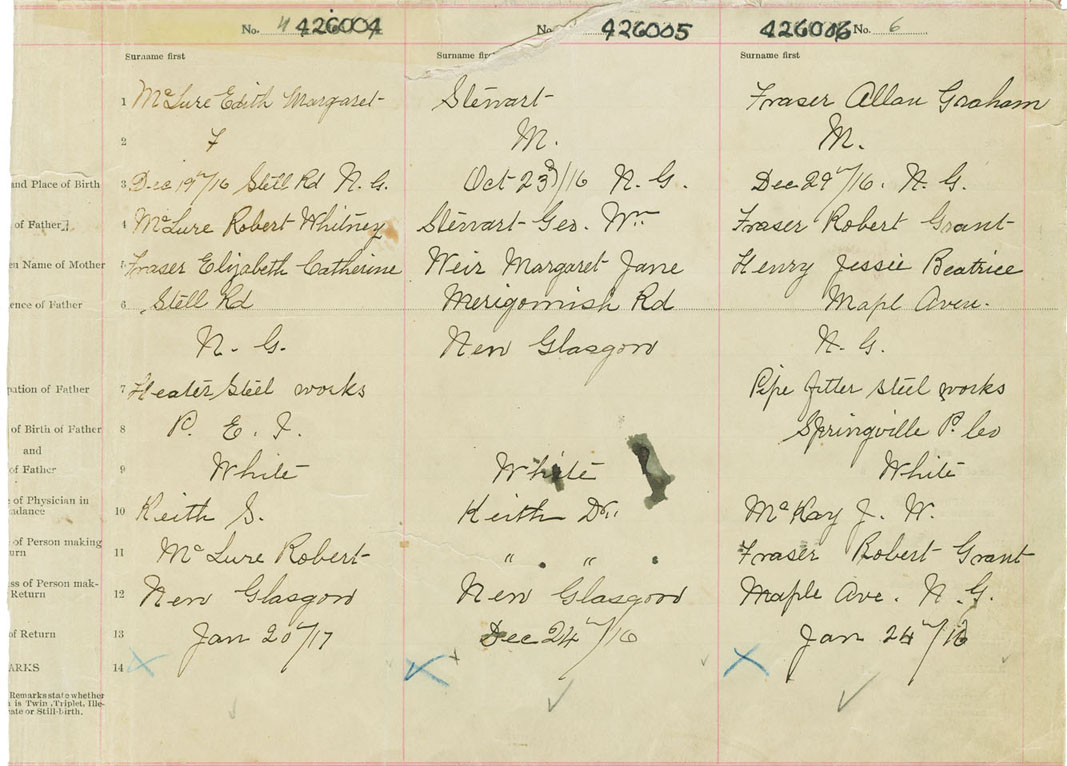 No. 4 426004 No. 426005 426006 No. 6
Surname first Surname first Surname first
1 McLure Edith Margaret Stewart Fraser Allan Graham
2 F M. M.
and Place of Birth 3 Dec 19th/16 Stell Rd N. G. Oct 23/16 N. G. Dec 29th/16. N. G.
of Father 4 McLure Robert Whitney Stewart Geo. Wm Fraser Robert Grant
en Name of Mother 5 Fraser Elizabeth Catherine Weir Margaret Jane Henry Jessie Beatrice
ence of Father 6 Stell Rd Merigomish Rd Mapl Aven.
N. G. New Glasgow N. G.
pation of Father 7 Heater Steel works Pipe fitter steel works
of Birth of Father 8 P. E. I. Springville P. Co
and
of Father 9 White White White
e of Physician in
ndance 10 Keith S. Keith Dr. McKay J. W.
of Person making
urn 11 McLure Robert " " Fraser Robert Grant
ss of Person mak-
Return 12 New Glasgow New Glasgow Maple Ave. N. G.
of Return 13 Jan 20th/17 Dec 24th/16 Jan 24th/16
ARKS 14
Remarks state whether
is Twin, Triplet, Ille-
ate or Still-birth.